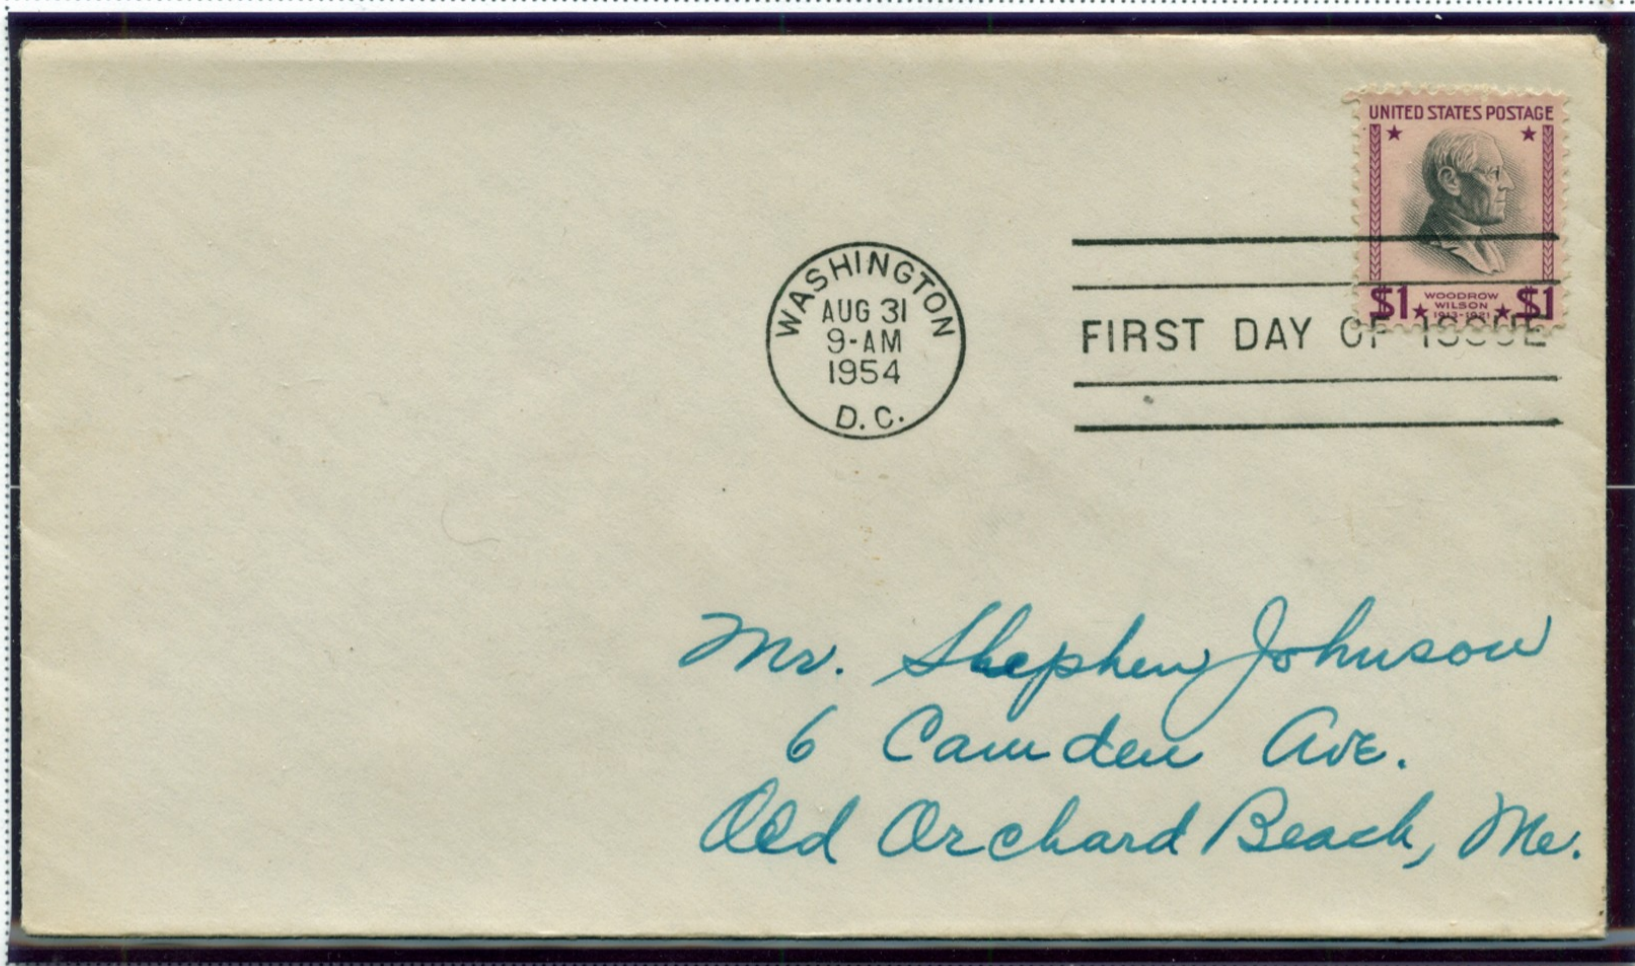 UNITED STATES POSTAGE
$1 WOODROW WILSON 1913-1921 $1
WASHINGTON
AUG 31
9-AM
1954
D.C.
FIRST DAY OF ISSUE
Mr. Stephen Johnson
6 Camden Ave.
Old Orchard Beach, Me.